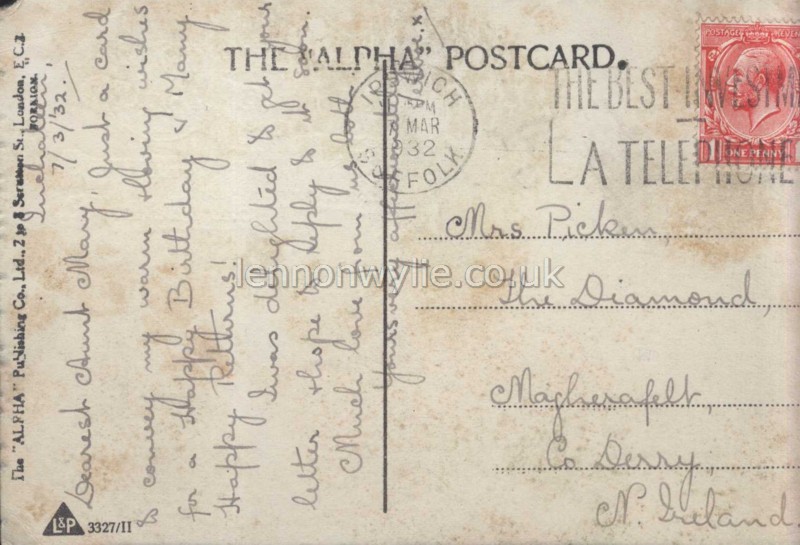 THE "ALPHA" POSTCARD.
POSTAGE REVENUE
ONE PENNY
IPSWICH
PM
MAR
1932
SUFFOLK
THE BEST INVESTM
A TELEPHONE
7/3/'32.
Dearest Aunt Mary, Just a card
to convey my warm & loving wishes
for a Happy Birthday & Many
Happy Returns!
I was delighted to get your
letter & hope to reply to it soon.
Much love from us both
Yours very affectionately
Mrs Picken,
The Diamond,
Magherafelt,
Co Derry,
N. Ireland.
The "ALPHA" Publishing Co., Ltd., 2 & 3 Scrutton St., London, E.C.2
FOREIGN.
L&P 3327/II
lennonwylie.co.uk